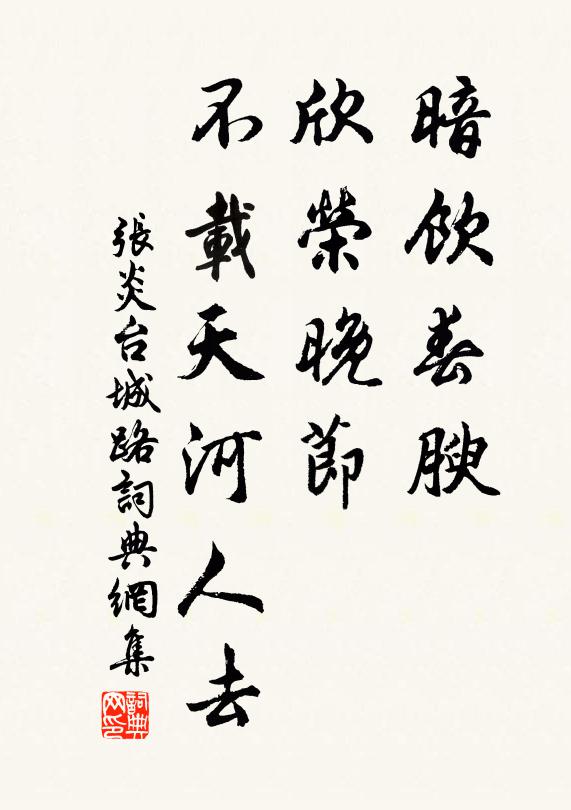 暗飲春腴
欣榮晚節
不載天河人去
張炎台城路詞典網集
詞典
网印